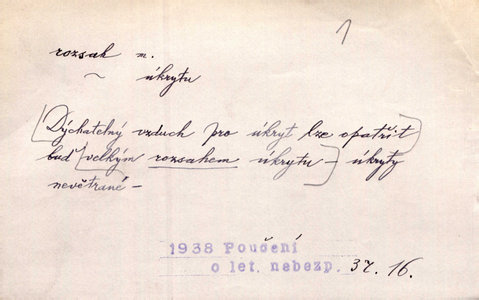 1
rozsah m.
~ úkrytu
(Dýchatelný vzduch pro úkryt lze opatřit)
buď (velkým rozsahem úkrytu) – úkryty
nevětrané –
1938 Poučení
o let. nebezp. 37. 16.